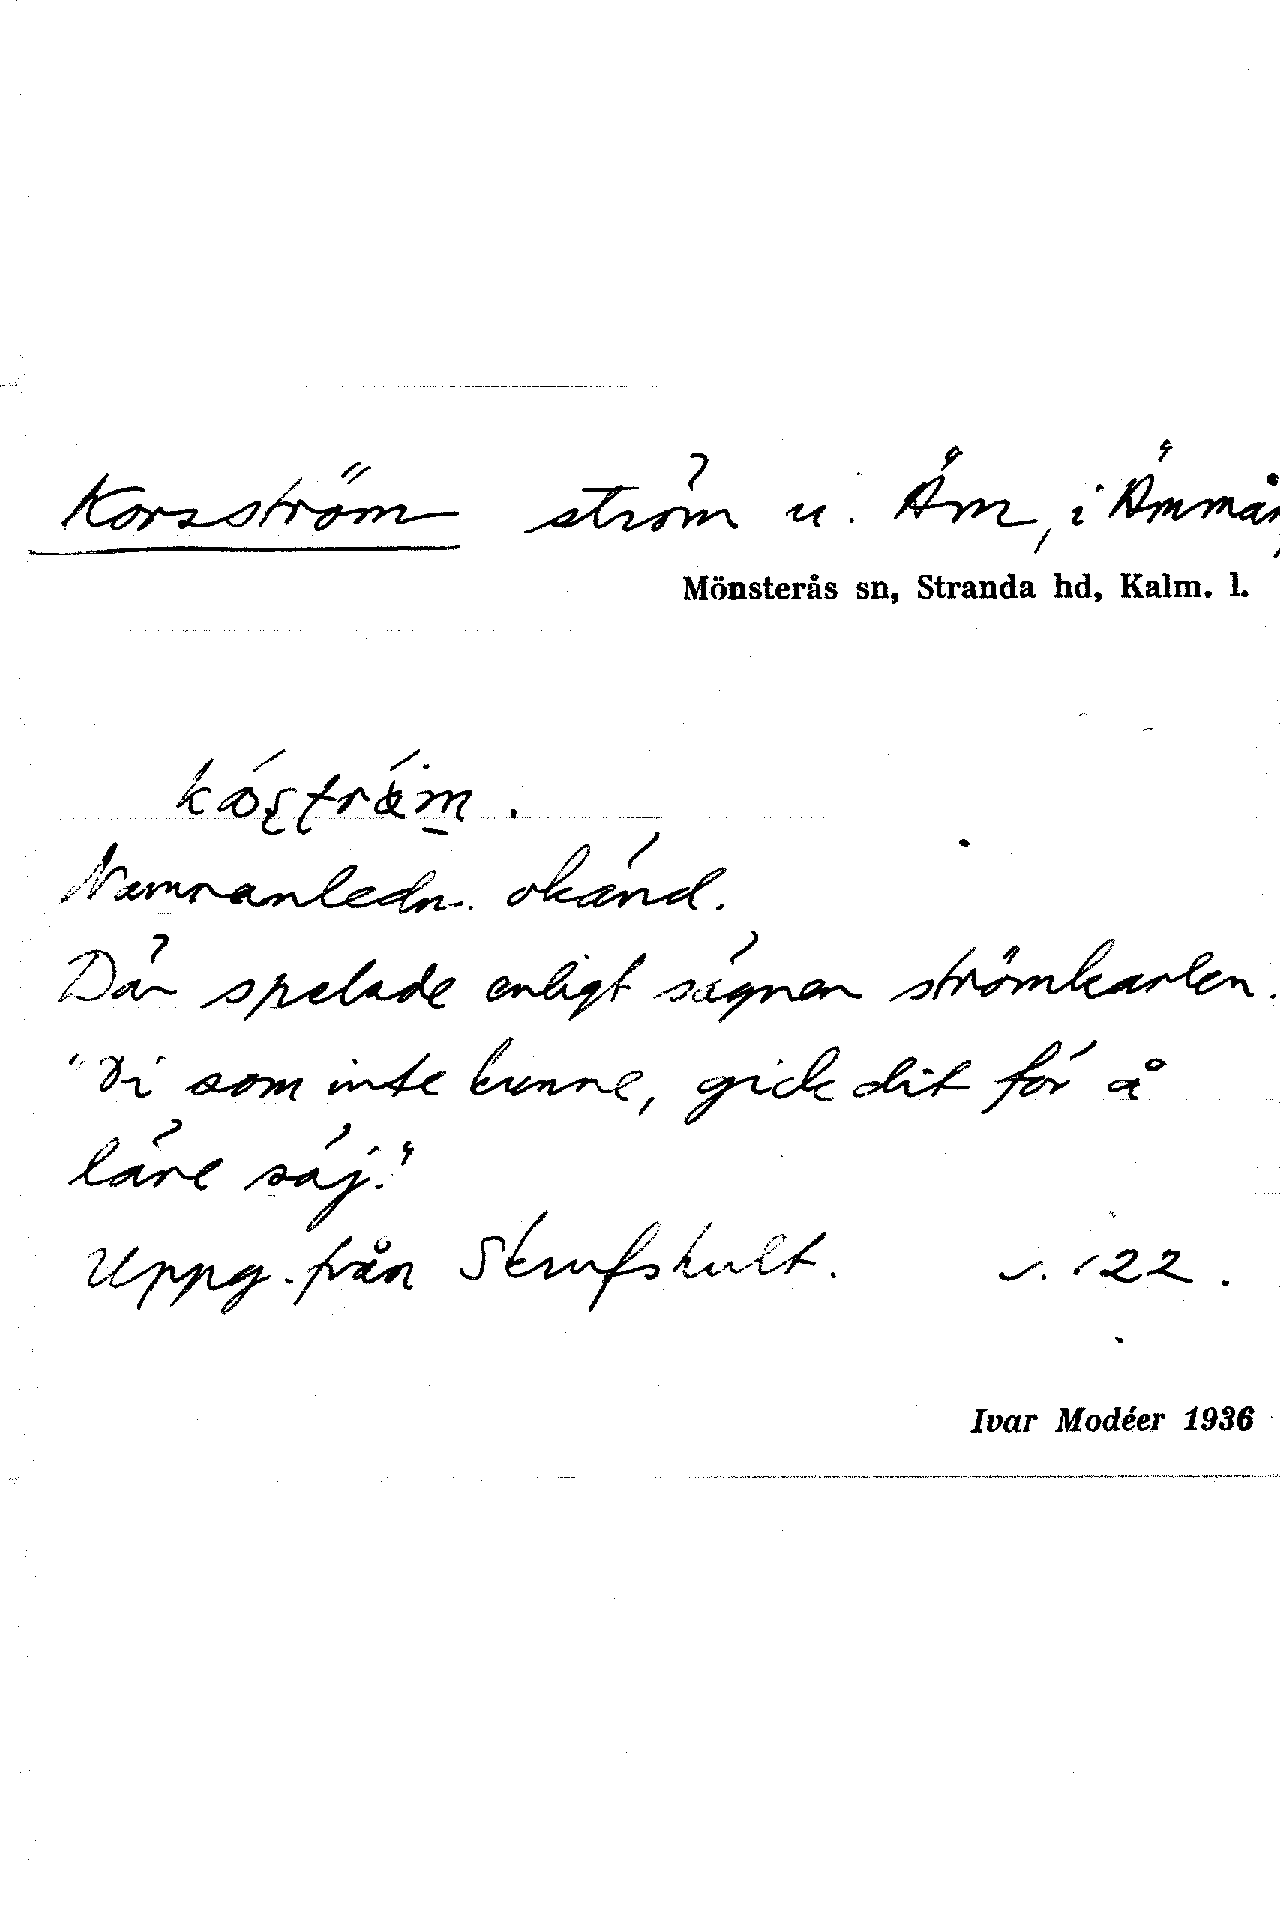 Korsström ström u. Äm, i Ämmån,
Mönsterås sn, Stranda hd, Kalm. l.
Namnanledn. okänd.
Där spelade enligt sägnen strömkarlen.
"Di som inte kunne, gick dit för å
läre säj."
Uppg. från Skrufshult. 122.
Ivar Modéer 1936